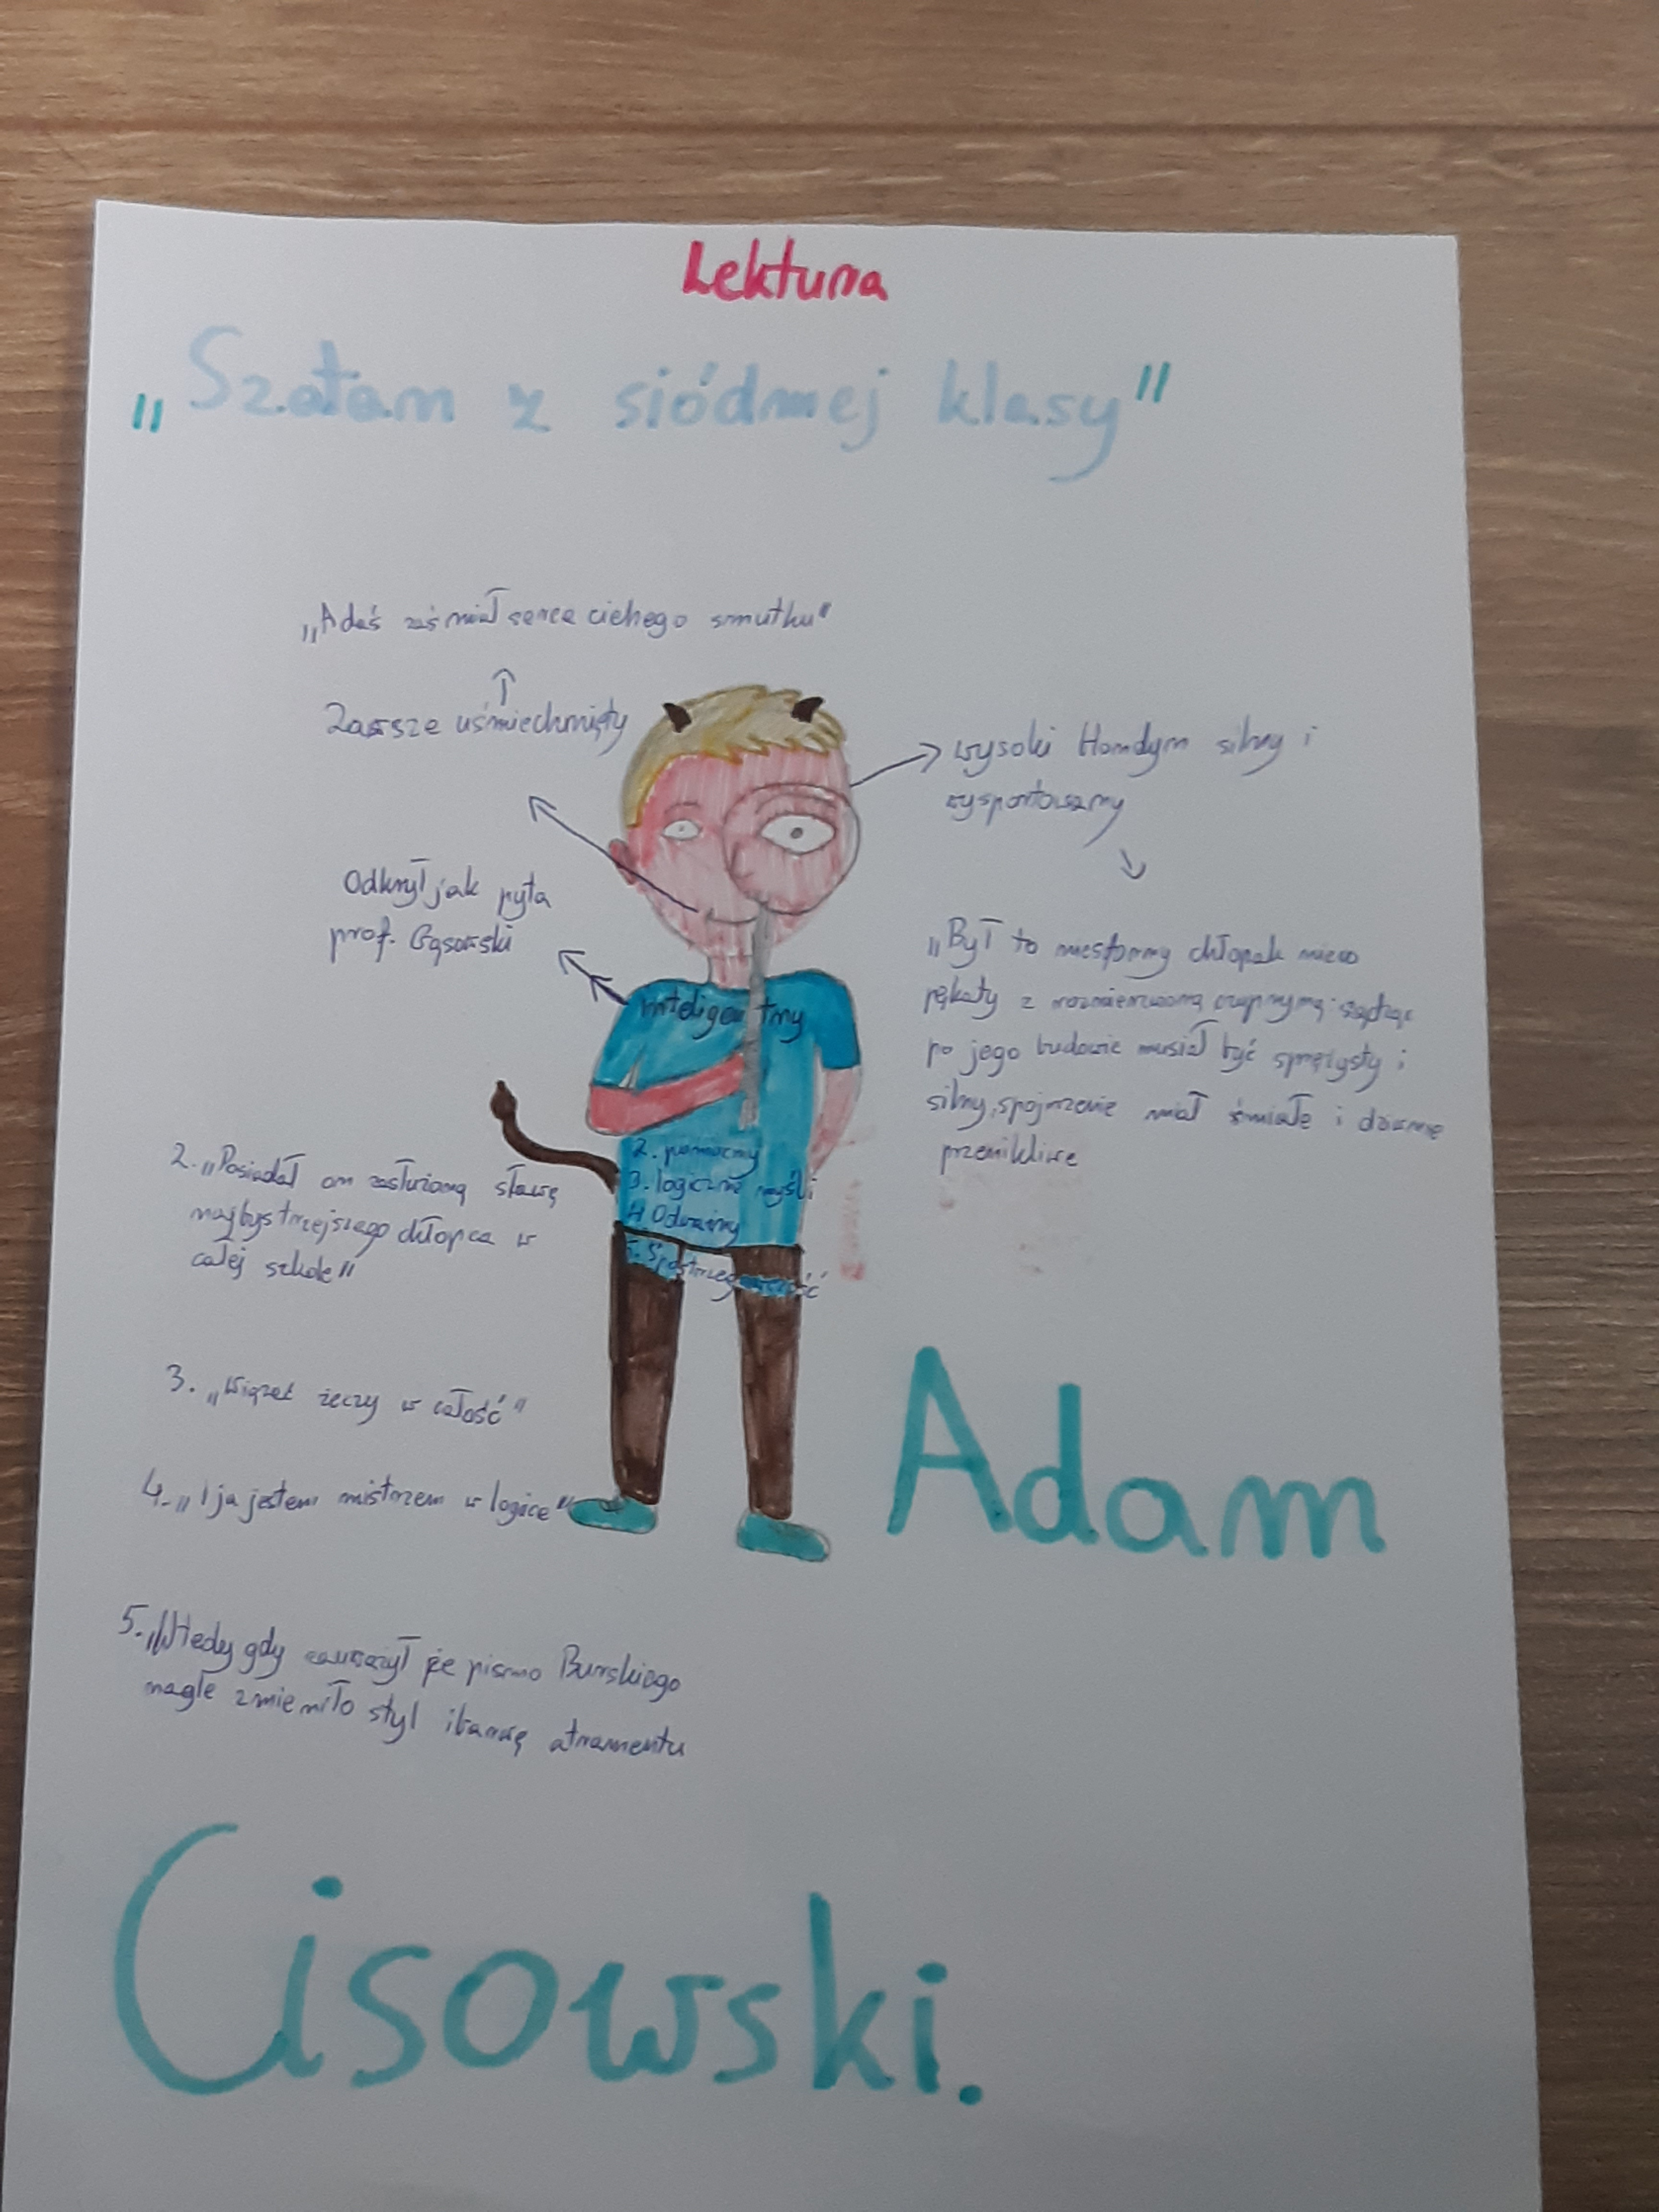 Lektura
„Szatan z siódmej klasy"
„Adaś zaś miał serce cichego smutku"
Zawsze uśmiechnięty
wysoki blondyn silny i
wysportowany
Odkrył jak pyta
prof. Gąsowski
„Był to niesforny chłopak nieco
pękaty z rozmierzwioną czupryną sądząc
po jego budowie musiał być sprężysty i
silny, spojrzenie miał śmiałe i dziwnie
przenikliwe
inteligentny
2. pomocny
3. logicznie myśli
4. Odważny
5. Spostrzegawczość
2. „Posiadał on zasłużoną sławę
najbystrzejszego chłopca w
całej szkole"
3. „Wiązać żeczy w całość"
4. „I ja jestem mistrzem w logice"
5. „Wtedy gdy zauważył że pismo Burskiego
nagle zmieniło styl i barwę atramentu
Adam
Cisowski.